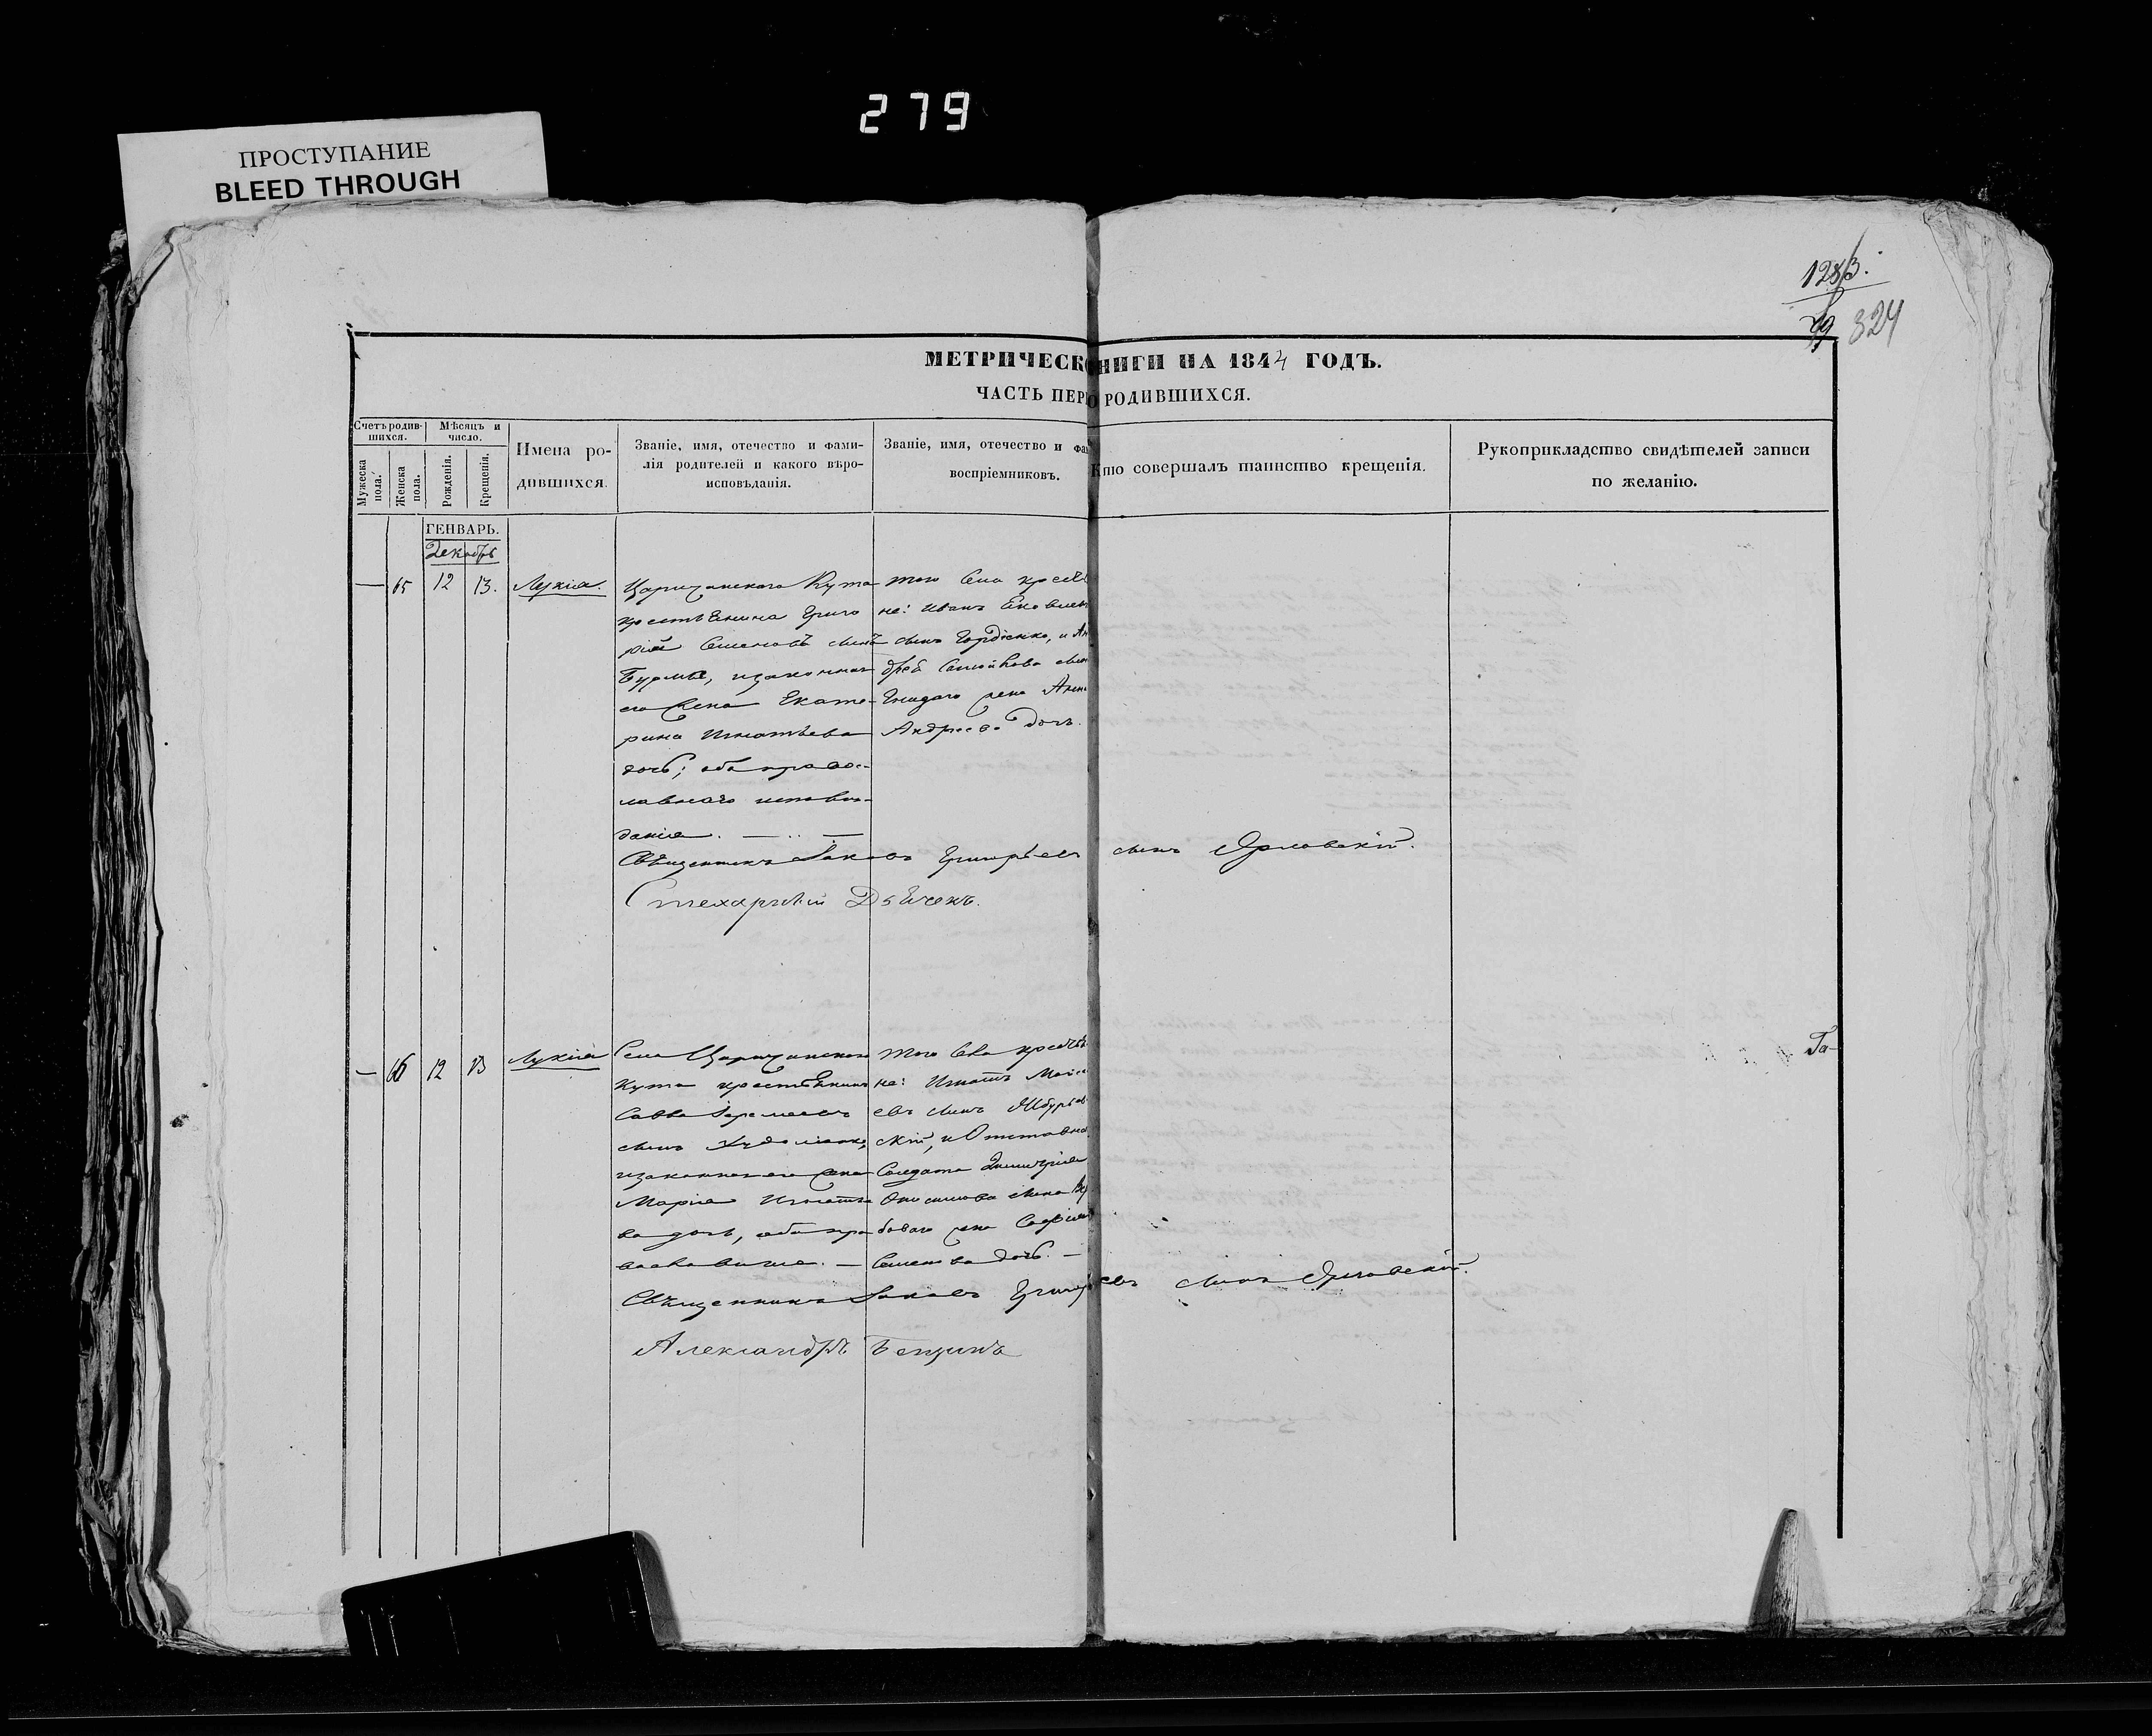 279
ПРОСТУПАНИЕ
BLEED THROUGH
324
МЕТРИЧЕСКО НИГИ НА 1844 ГОДЪ.
ЧАСТЬ ПЕР О РОДИВШИХСЯ.
Счетъ родив-
шихся.
Мужеска пола.
Женска пола.
Мѣсяцъ и
число.
Рожденія.
Крещенія.
Имена ро-
дившихся.
Званіе, имя, отечество и фами-
лія родителей и какого вѣро-
исповѣданія.
Званіе, имя, отечество и фа
воспріемниковъ.
Кто совершалъ таинство крещенія.
Рукоприкладство свидѣтелей записи
по желанію.
ГЕНВАРЬ.
Декабрь
65 12 13. Лукія.
Царичанского Кута
крестьянина Григо
рій Семеновъ сынъ
законная
его жена Екате-
рина Игнатьева
дочь; оба право-
славнаго исповѣ-
данія.
того Села кресть
не: Иванъ
сынъ Гордіенко, и Ан
дрея сына
жена Анна
Андреева дочь.
Священникъ Іаковъ Григорьевъ сынъ Орловскій.
Стехарный Дьячекъ.
66 12 13 Лукія
Села Царичанского
Кута крестьянинъ
Савва сынъ
законная его жена
Марія Игнатіе
ва дочь, оба пра
вославные.
того Села кресть
не: Игнатъ
евъ сынъ
скій, и Отставна
Солдата Димитрія
сына
жена Софія
Семенова дочь.
Священникъ Іаковъ Григорьевъ сынъ Орловскій.
Александръ
Га-